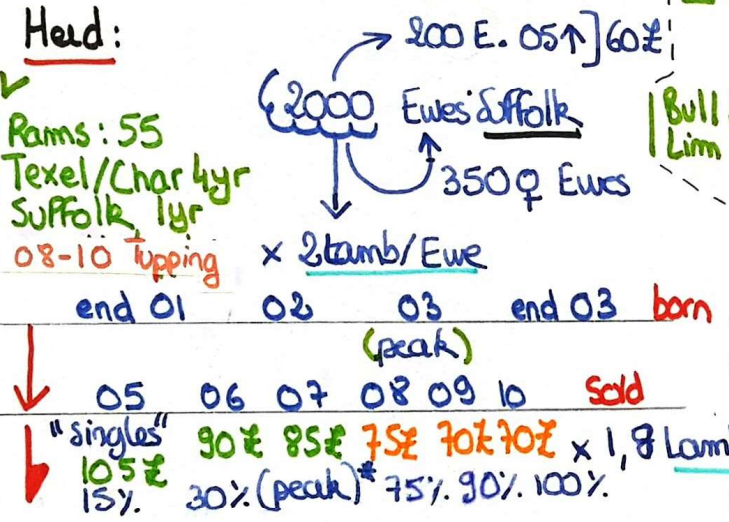 Herd:
200 E. 05↑]60£
(2000 Ewes Suffolk
350♀ Ewes
Rams: 55
Texel/Char 4yr
Suffolk 1yr
08-10 Tupping
x 2 Lamb/Ewe
Bull
Lim
end 01 02 03 end 03 born
(peak)
05 06 07 08 09 10 Sold
"singles" 90£ 85£ 75£ 70£ 70£ x 1,8 Lam
105£
15% 30% (peak)* 75% 90% 100%